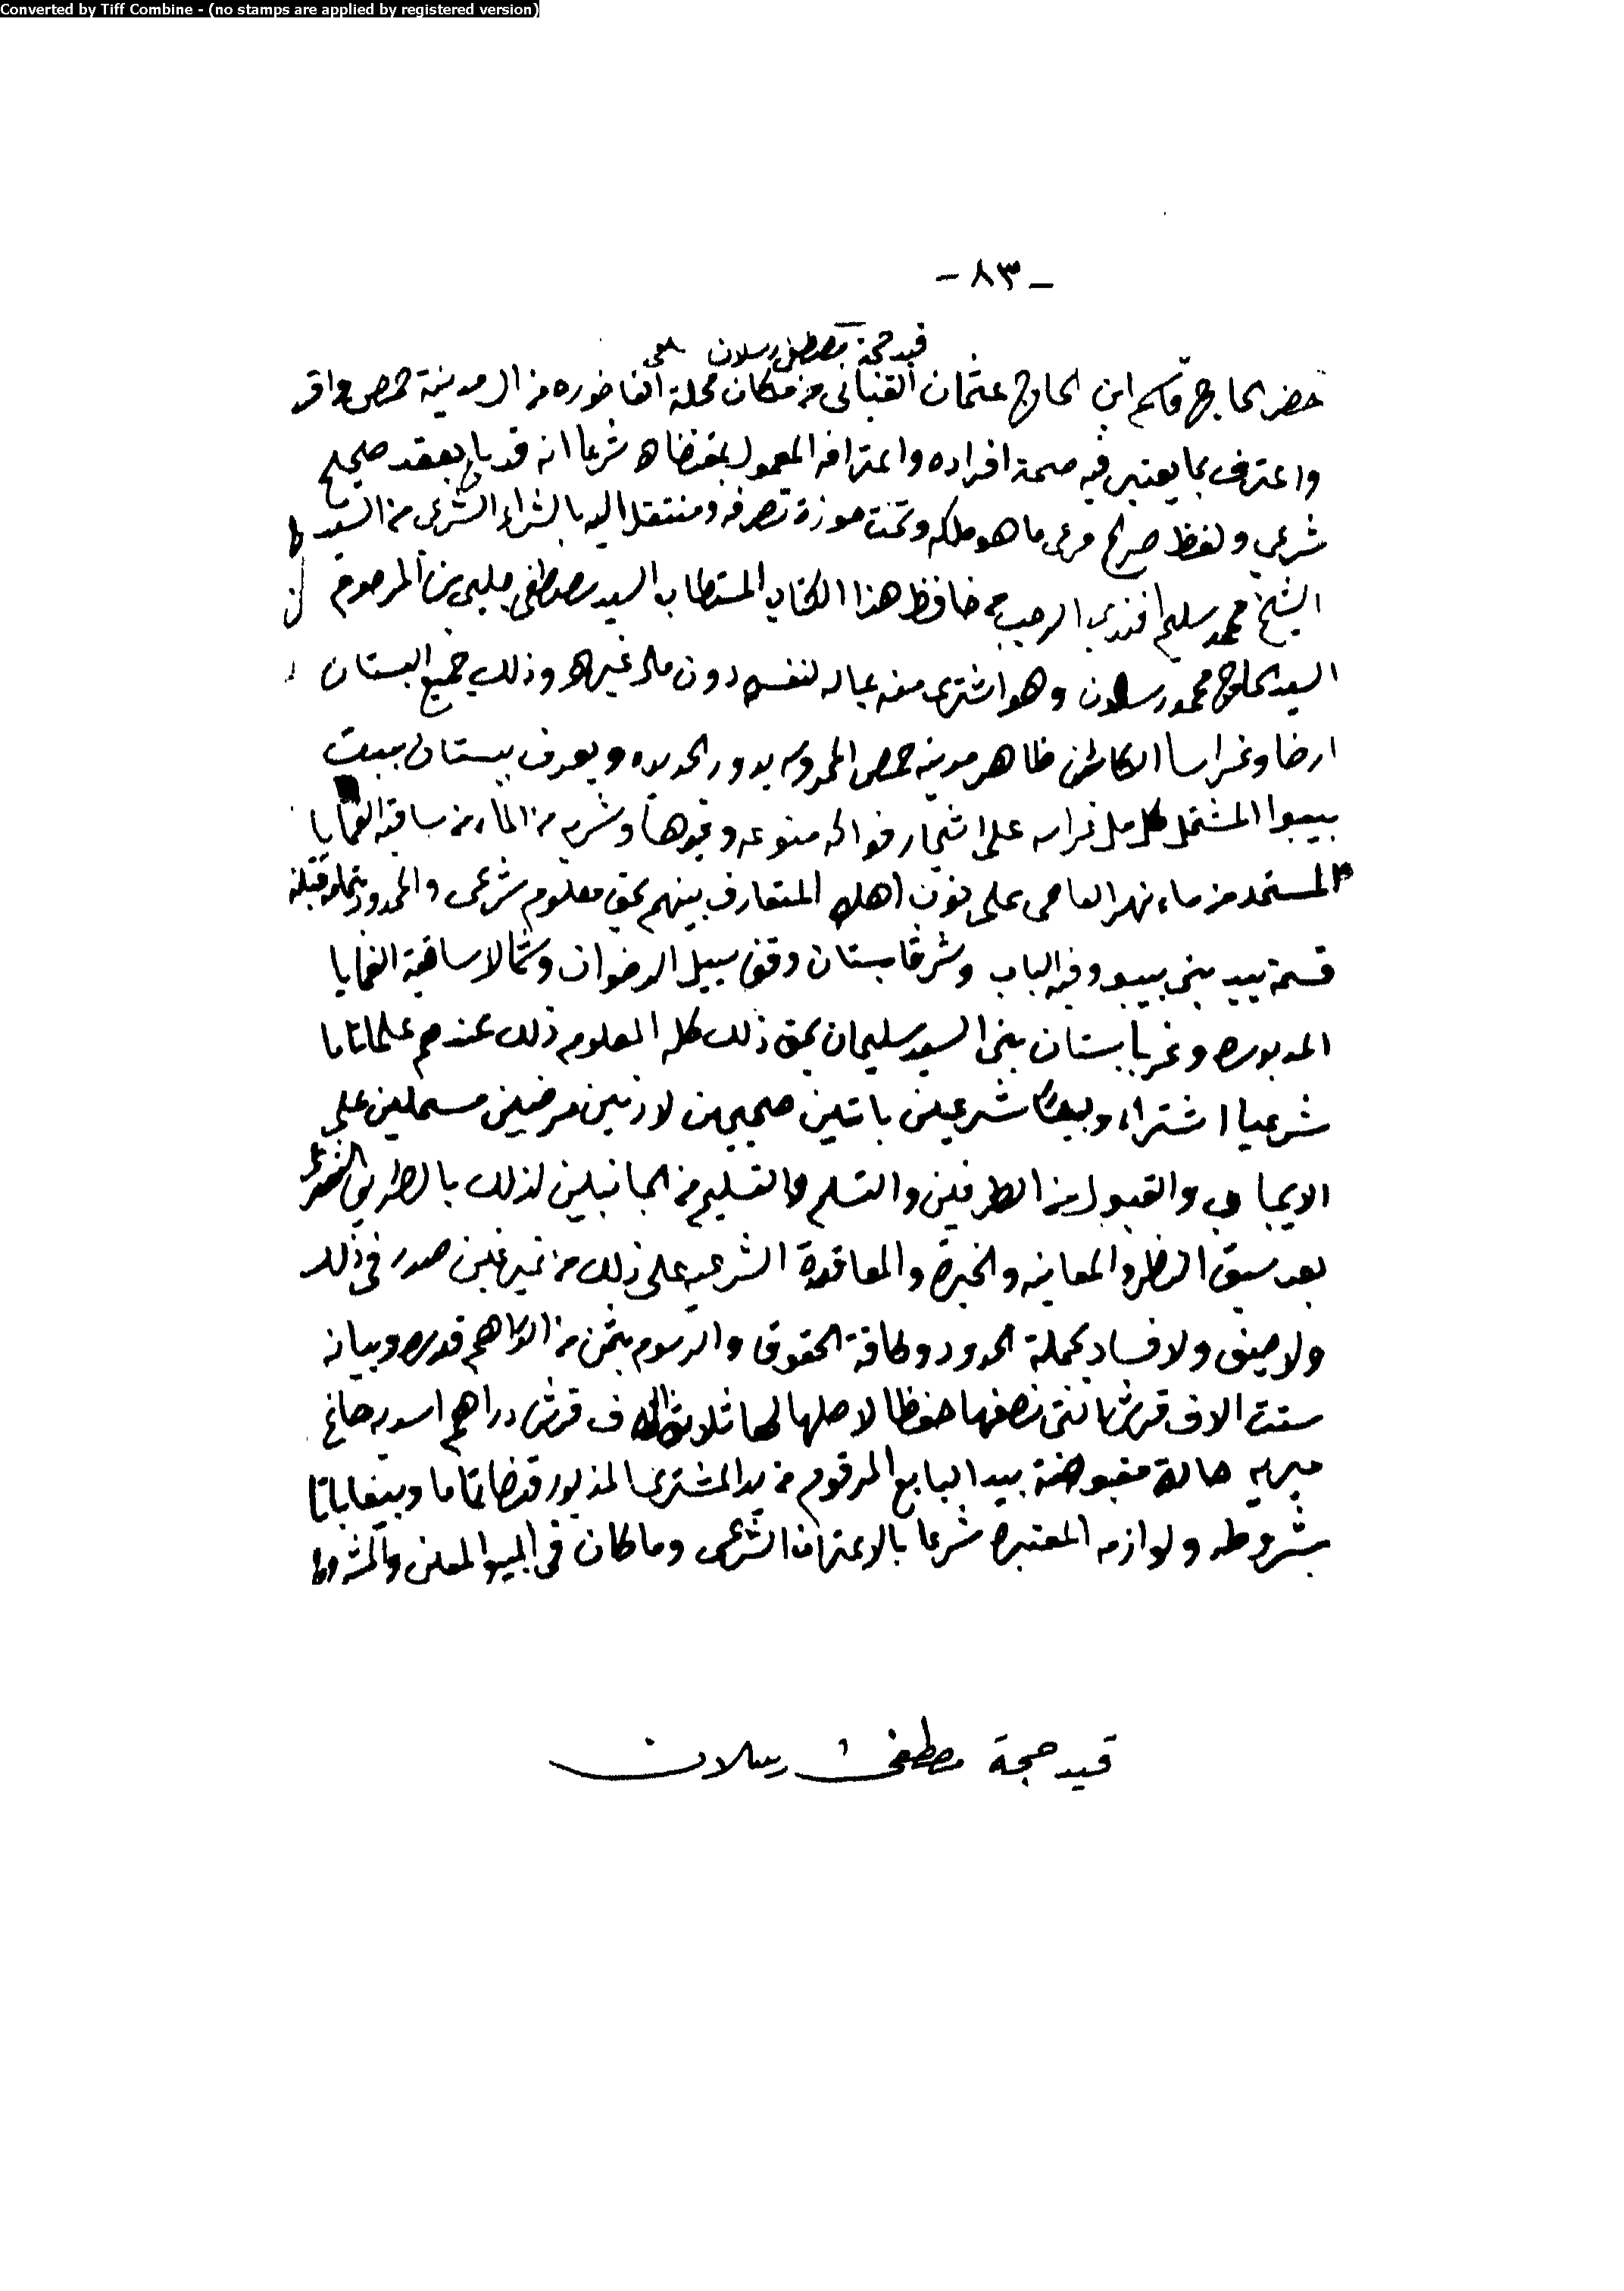 Converted by Tiff Combine - (no stamps are applied by registered version)
- ٨٣ -
قيد حجة مصطفى رسلان
حضر الحاج قاسم ابن الحاج عثمان القباني من سكان محلة الفاخوره من المدينة حمص واقر
واعترف بما يعتبر فيه صحة اقراره واعترافه المعمول بمقتضاه شرعا انه قد باع بعقد صحيح
شرعي ولفظ صريح مرعى ما هو ملكه وتحت حوزة تصرفه ومنتقل اليه بالشراء الشرعى من السيد
الشيخ محمد سليم افندي الرجب من حافظ هذا الكتاب المستطاب السيد مصطفى جلبي بن المرحوم
السيد الحاج محمد رسلان وهو اشترى منه بماله لنفسه دون مال غيره وذلك جميع البستان
ارضا وغراسا الكائن ظاهر مدينة حمص المحروسه بدور الحديده ويعرف ببستان ببيت
بيبوا المشتمل كامل غراسه على اشجار فواكه منوعه وغيرها وشربه من الماء من ساقية الغمايا
المستمد من ماء نهر العاصى على اهله المتعارف بينهم بحق معلوم شرعى والمحدود قبلة
قسمة بيد بنى بيبو وفيه الباب وشرقا بستان وقف سبيل الرضوان وشمالا ساقية الغمايا
المذبوره وغربا بستان بنى السيد سليمان بحق ذلك كله المعلوم ذلك عندهم علما تاما
شرعيا اشتراء وبيعا شرعيين باتين صحيحين لازمين مرضيين مشتملين على
الايجاب والقبول من الطرفين والتسلم والتسليم من الجانبين لذلك بالطريق الشرعى
بعد سبق النظر والمعاينه والخبرة والمعاقدة الشرعيه على ذلك من غير غبن صدر فى ذلك
ولا حيف ولا فساد بجملة الحدود وكافة الحقوق والرسوم بثمن من الدراهم قدره وبيانه
ستت الاف قرش اتى نصفها حفظا لاصلها ثلاثة الاف قرش دراهم اسديه صاغ
ميريه حالة مقبوضة بيد البايع المرقوم من يد المشترى المذبور قبضا تاما
بشروطه ولوازمه المعتبره شرعا بالاعتراف الشرعى وما كان فى المبيع
قيد حجة مصطفى رسلان